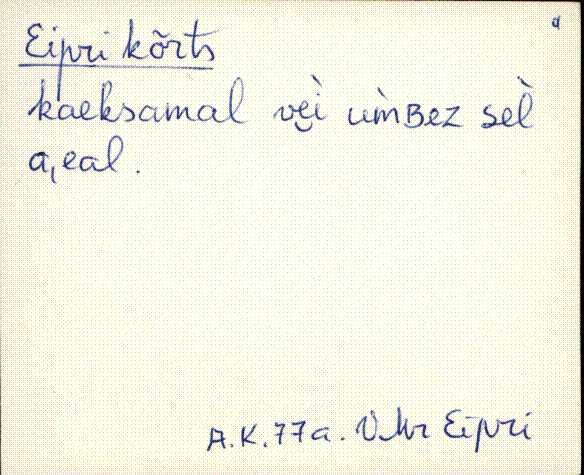 Eipri kõrts
kaeksamal ve̮i ùmʙez sèl
a,eal.
A.K.77a. Eipri